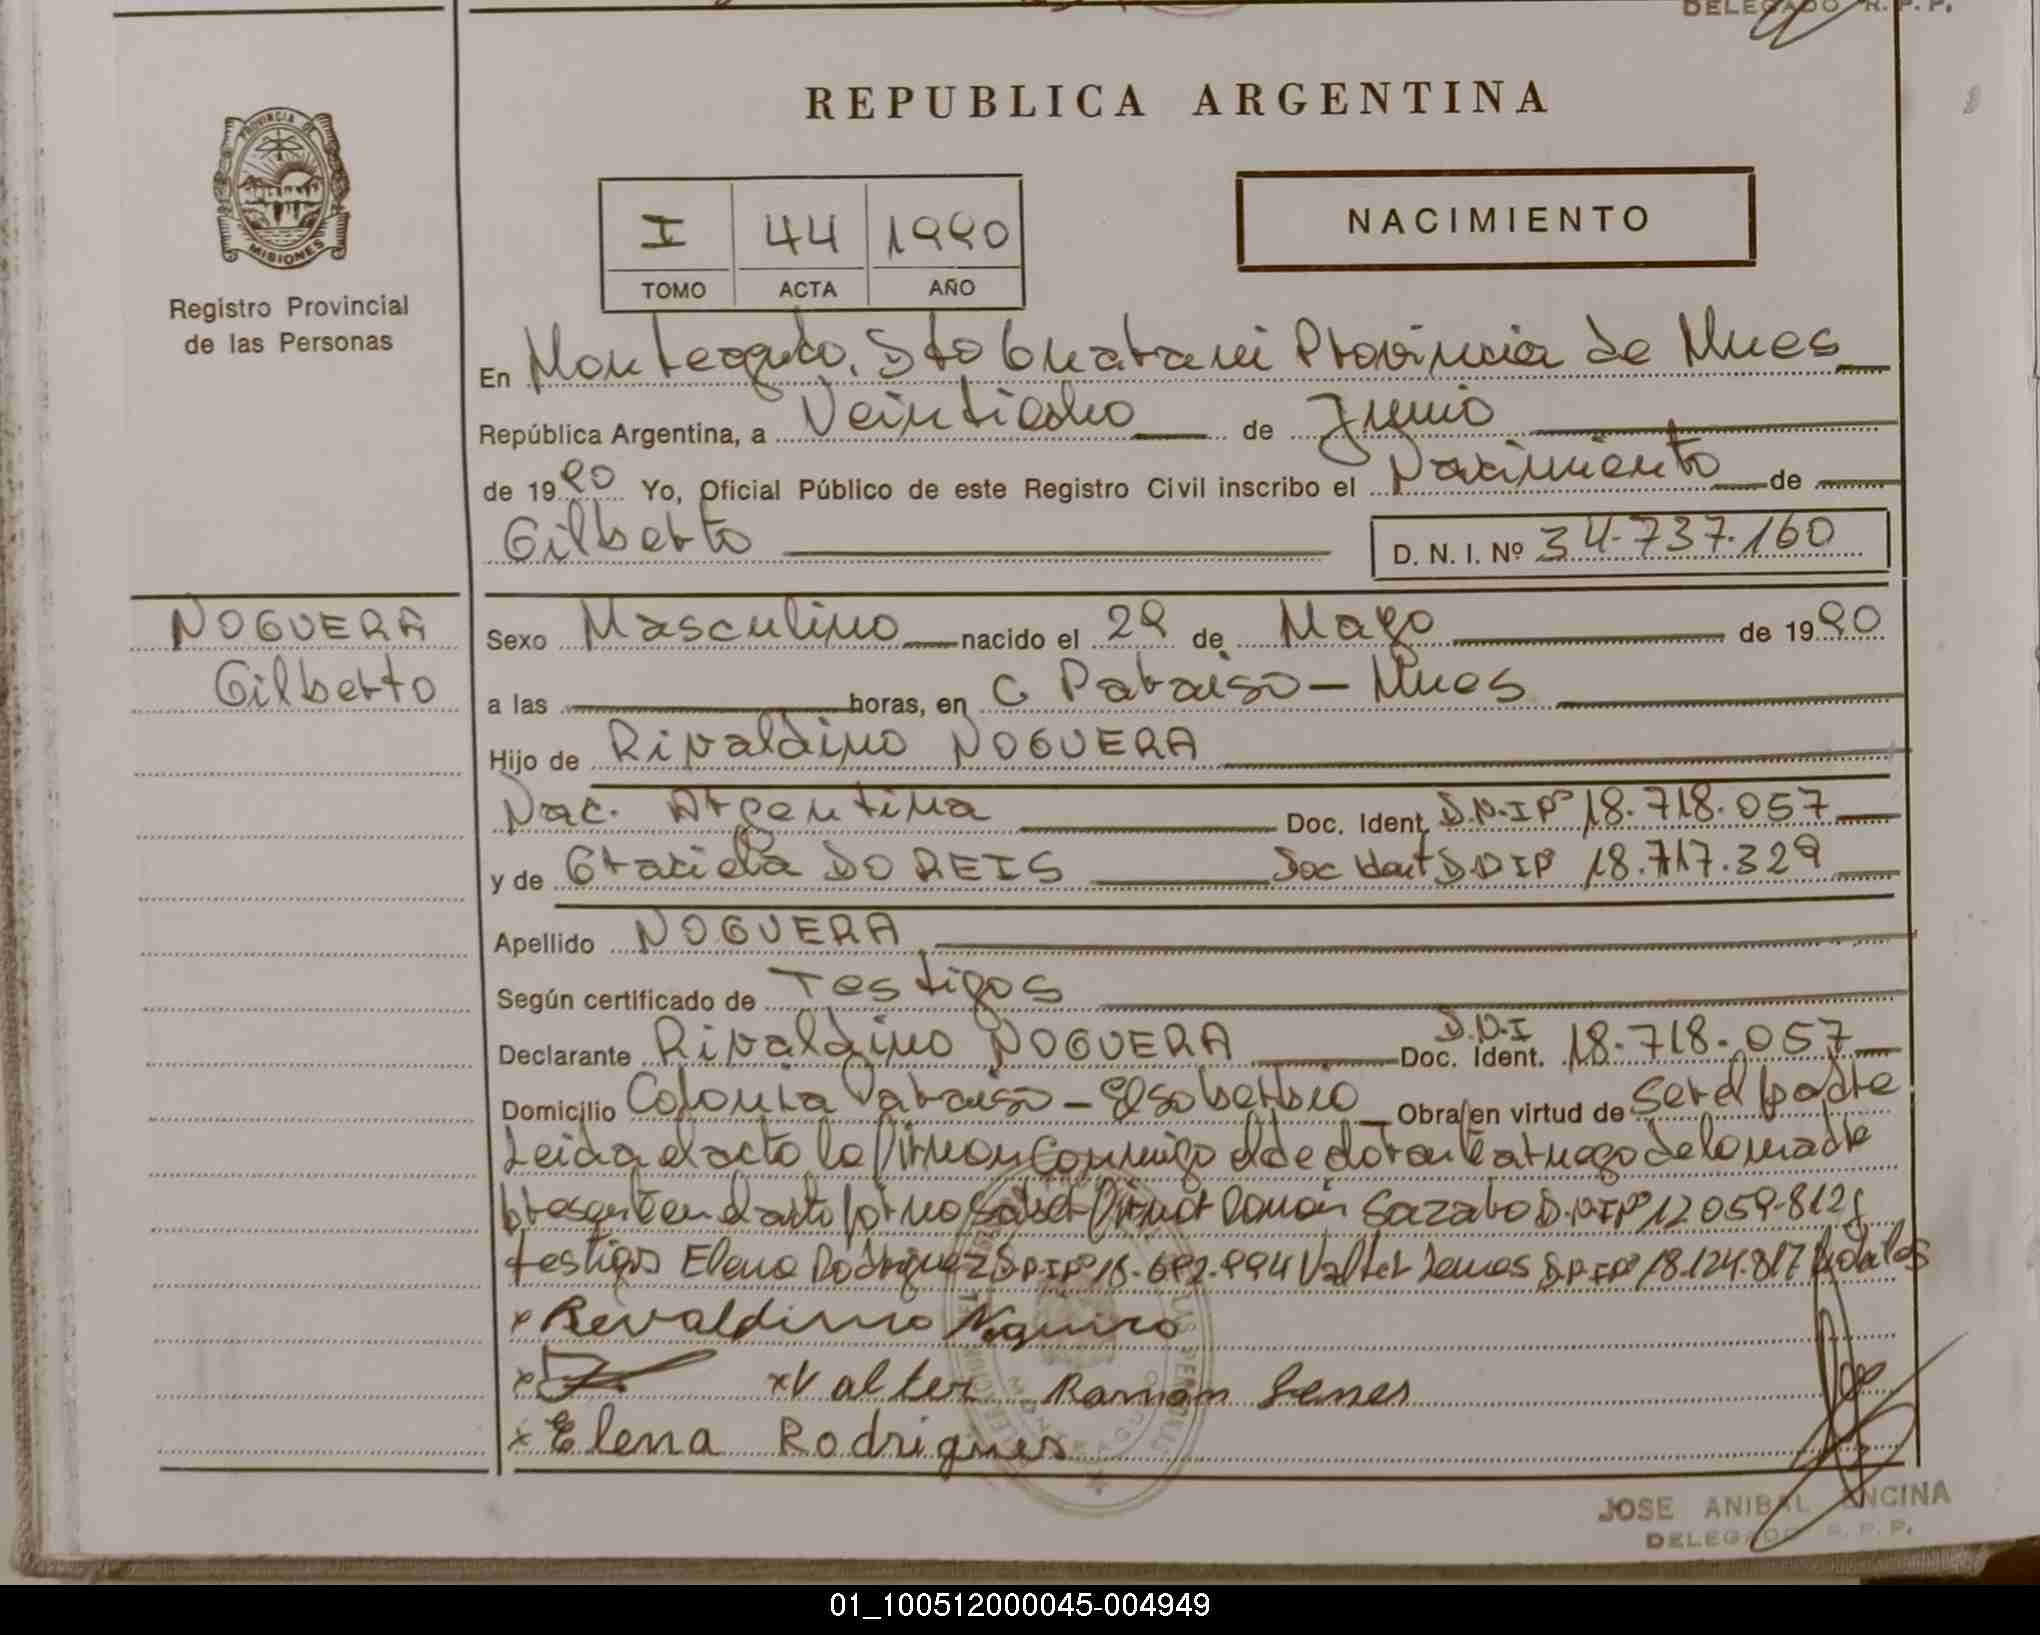 DELEGADO R. P. P.
REPUBLICA ARGENTINA
PROVINCIA DE
MISIONES
Registro Provincial
de las Personas
I 44 1990
TOMO ACTA AÑO
NACIMIENTO
En Monteagudo, Dto Guarani Provincia de Mnes
República Argentina, a Veintiocho de Junio
de 1990 Yo, Oficial Público de este Registro Civil inscribo el Nacimiento de
Gilberto D. N. I. Nº 34.737.160
NOGUERA
Gilberto
Sexo Masculino nacido el 29 de Mayo de 1990
a las horas, en C Paraiso - Mnes
Hijo de Rivaldino NOGUERA
Nac. Argentina Doc. Ident. D.N.I Nº 18.718.057
y de Graciela DO REIS Doc Ident D.N.I Nº 18.717.329
Apellido NOGUERA
Según certificado de Testigos
Declarante Rivaldino NOGUERA Doc. Ident. D.N.I 18.718.057
Domicilio Colonia Paraiso - El soberbio Obra en virtud de ser el padre
Leida el acto la firman conmigo el declarante a ruego de la madre
presente en el acto por no saber firmar Ramón Sazabo D.N.I Nº 12 059.812 y
testigos Elena Rodriguez D.N.I Nº 18.692.994 Valter Lemes D.N.I Nº 18.124.817
x Revaldinno Noguiro
x x Valter Ramon Lemes
x Elena Rodrigues
JOSE ANIBAL ENCINA
DELEGADO R. P. P.
01_100512000045-004949